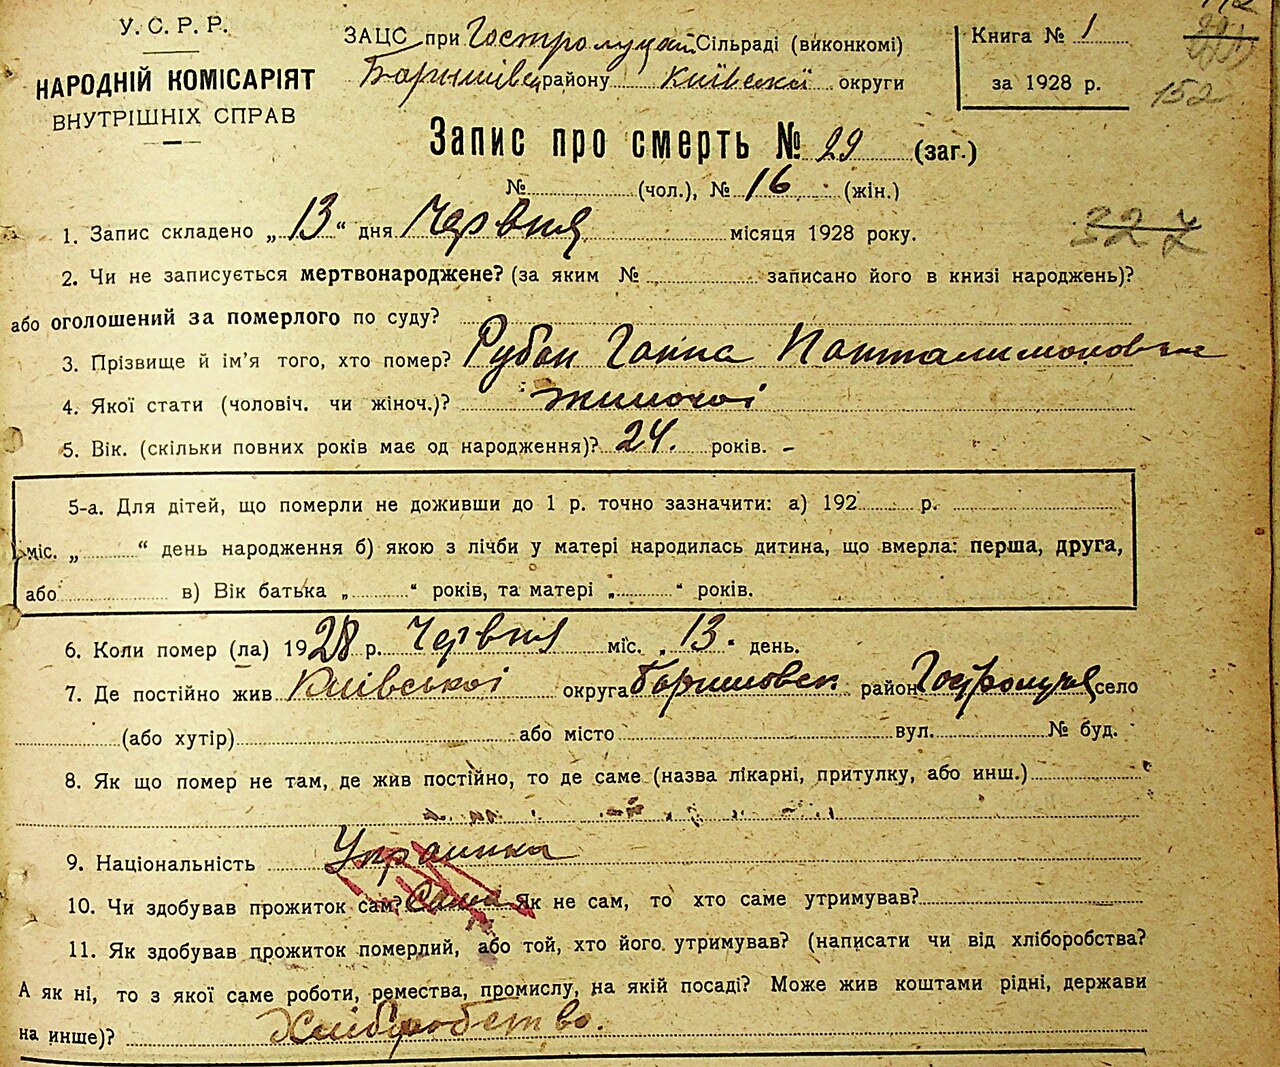 У. С. Р. Р.
НАРОДНІЙ КОМІСАРІЯТ
ВНУТРІШНІХ СПРАВ
ЗАЦС при Гостролуцькій Сільраді (виконкомі)
Баришівськ району Київської округи
Книга № 1
за 1928 р.
152
Запис про смерть № 29 (заг.)
№ (чол.), № 16 (жін.)
1. Запис складено „ 13 “ дня Червня місяця 1928 року.
327
2. Чи не записується мертвонароджене? (за яким № записано його в книзі народжень)?
або оголошений за померлого по суду?
3. Прізвище й ім'я того, хто помер? Рубан Ганна Панталимоновна
4. Якої стати (чоловіч. чи жіноч.)? жиночоі
5. Вік. (скільки повних років має од народження)? 24. років. -
5-а. Для дітей, що померли не доживши до 1 р. точно зазначити: а) 192 р.
міс. „ “ день народження б) якою з лічби у матері народилась дитина, що вмерла: перша, друга,
або в) Вік батька „ “ років, та матері „ “ років.
6. Коли помер (ла) 1928 р. Червня міс. „ 13 “ день.
7. Де постійно жив Київськоі округа Баришовск район Гостролучя село
(або хутір) або місто вул. № буд.
8. Як що помер не там, де жив постійно, то де саме (назва лікарні, притулку, або инш.)
9. Національність Украинка
10. Чи здобував прожиток сам? Сама Як не сам, то хто саме утримував?
11. Як здобував прожиток померлий, або той, хто його утримував? (написати чи від хліборобства?
А як ні, то з якої саме роботи, ремества, промислу, на якій посаді? Може жив коштами рідні, держави
на инше)? Хлібробство.